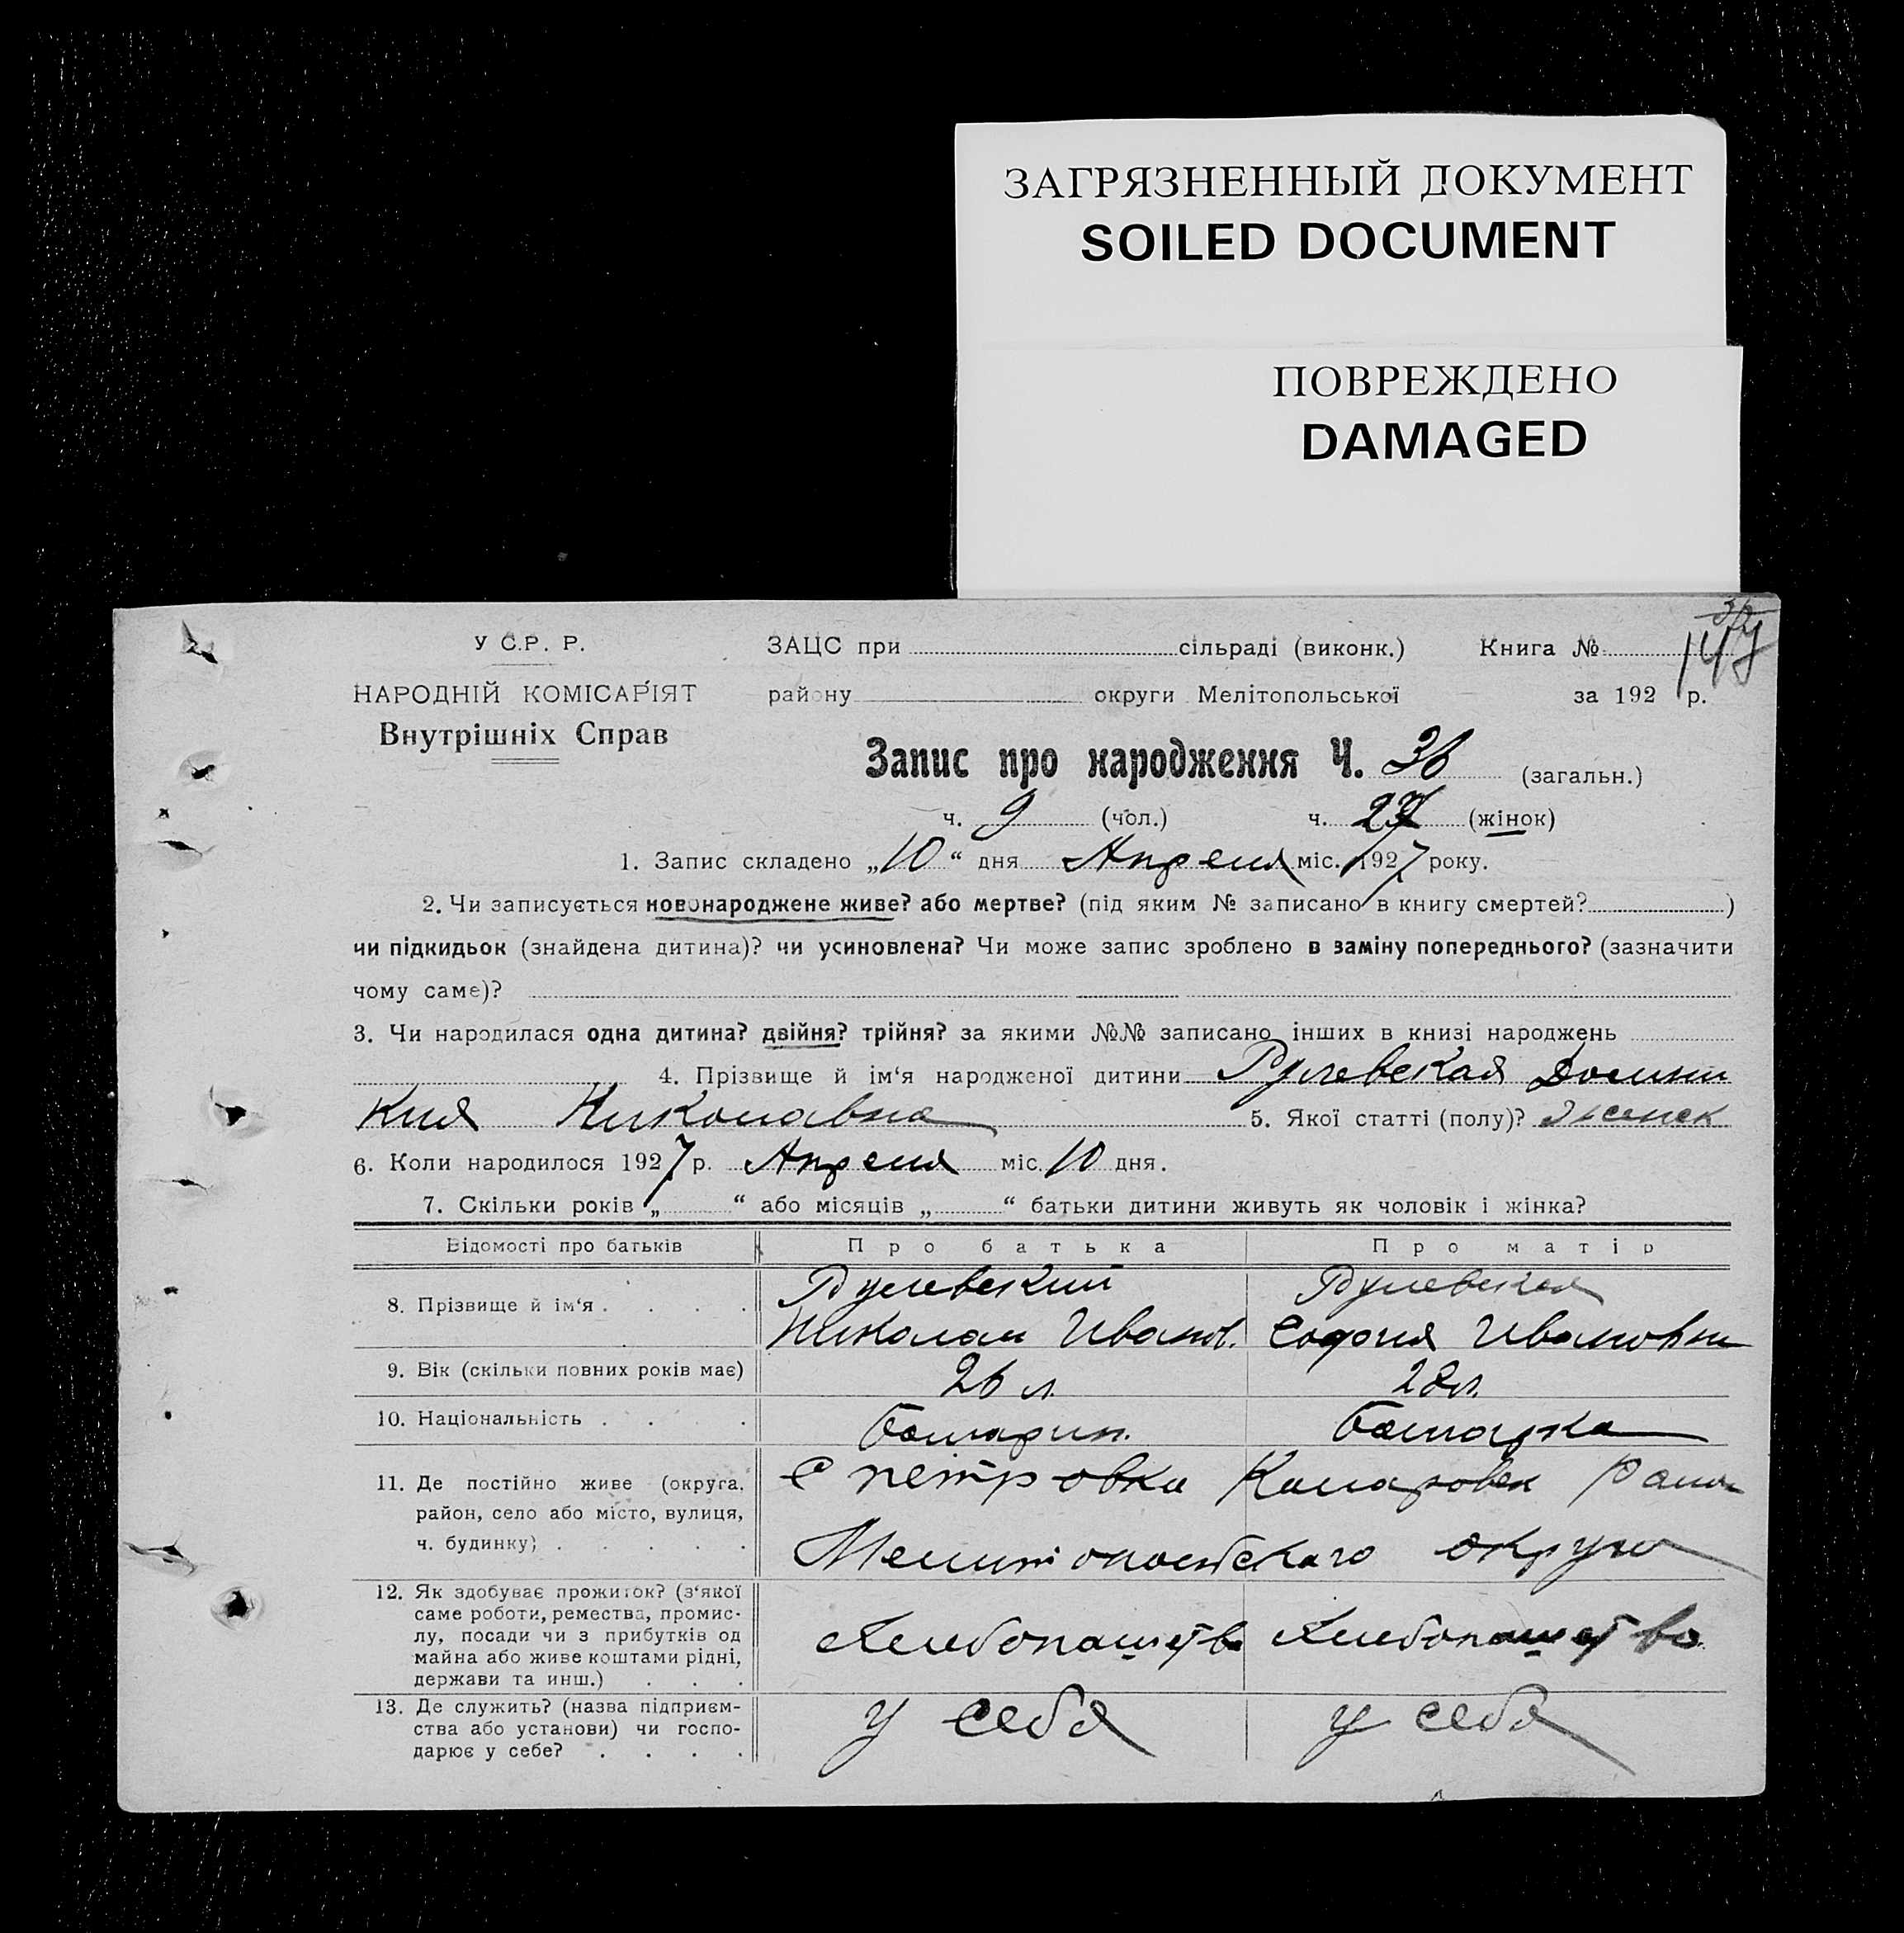 ЗАГРЯЗНЕННЫЙ ДОКУМЕНТ
SOILED DOCUMENT
ПОВРЕЖДЕНО
DAMAGED
147
У С.Р. Р.
ЗАЦС при сільраді (виконк.) Книга №
НАРОДНІЙ КОМІСАРІЯТ
району округи Мелітопольської за 192 р.
Внутрішніх Справ
Запис про народження Ч. 36 (загальн.)
ч. 9 (чол.) ч. 27 (жінок)
1. Запис складено „10“ дня Апреля міс. 1927 року.
2. Чи записується новонароджене живе? або мертве? (під яким № записано в книгу смертей? )
чи підкидьок (знайдена дитина)? чи усиновлена? Чи може запис зроблено в заміну попереднього? (зазначити
чому саме)?
3. Чи народилася одна дитина? двійня? трійня? за якими №№ записано інших в книзі народжень
4. Прізвище й ім‘я народженої дитини Рулевская Домни
кия Николавна 5. Якої статті (полу)? женск
6. Коли народилося 1927 р. Апреля міс. 10 дня.
7. Скільки років „ “ або місяців „ “ батьки дитини живуть як чоловік і жінка?
Відомості про батьків Про батька Про матір
8. Прізвище й ім‘я . . . . Рулевский Рулевская
Николай Иванов. София Ивановна
9. Вік (скільки повних років має) 26 л. 28 л.
10. Національність . . . Болгарин. Болгарка
11. Де постійно живе (округа, район, село або місто, вулиця, ч. будинку) . . . . .
С Петровка
Мелитопольскаго округа
12. Як здобуває прожиток? (з‘якої
саме роботи, ремества, промис-
лу, посади чи з прибутків од
майна або живе коштами рідні,
держави та инш.) . . .
Хлебопашество Хлебопашество
13. Де служить? (назва підприєм-
ства або установи) чи госпо-
дарює у себе? . . . .
у себя у себя